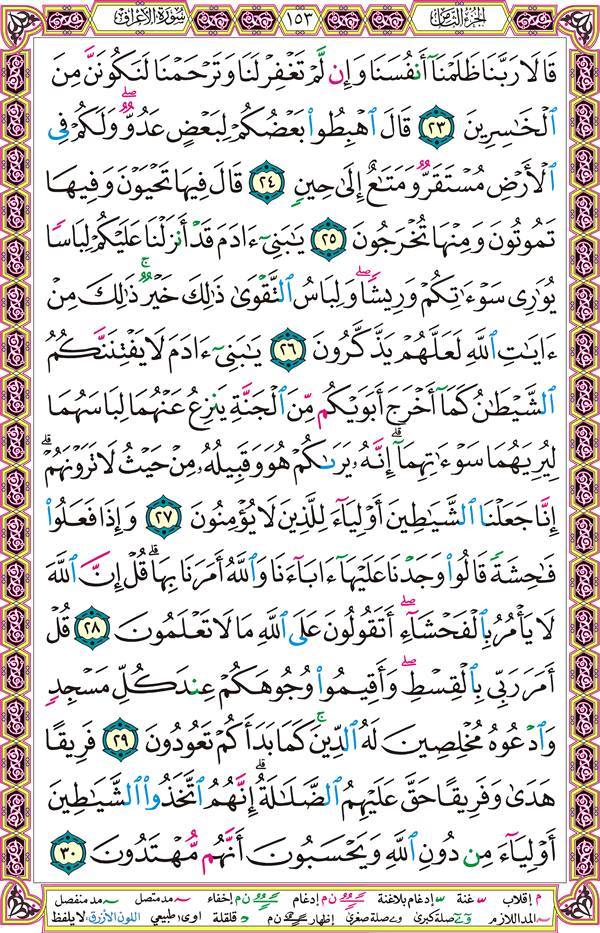 سورة الأعراف ١٥٣ الجزء الثامن
قَالَا رَبَّنَا ظَلَمْنَآ أَنفُسَنَا وَإِن لَّمْ تَغْفِرْ لَنَا وَتَرْحَمْنَا لَنَكُونَنَّ مِنَ
ٱلْخَٰسِرِينَ ٢٣ قَالَ ٱهْبِطُوا۟ بَعْضُكُمْ لِبَعْضٍ عَدُوٌّ ۖ وَلَكُمْ فِى
ٱلْأَرْضِ مُسْتَقَرٌّ وَمَتَٰعٌ إِلَىٰ حِينٍ ٢٤ قَالَ فِيهَا تَحْيَوْنَ وَفِيهَا
تَمُوتُونَ وَمِنْهَا تُخْرَجُونَ ٢٥ يَٰبَنِىٓ ءَادَمَ قَدْ أَنزَلْنَا عَلَيْكُمْ لِبَاسًا
يُوَٰرِى سَوْءَٰتِكُمْ وَرِيشًا ۖ وَلِبَاسُ ٱلتَّقْوَىٰ ذَٰلِكَ خَيْرٌ ۚ ذَٰلِكَ مِنْ
ءَايَٰتِ ٱللَّهِ لَعَلَّهُمْ يَذَّكَّرُونَ ٢٦ يَٰبَنِىٓ ءَادَمَ لَا يَفْتِنَنَّكُمُ
ٱلشَّيْطَٰنُ كَمَآ أَخْرَجَ أَبَوَيْكُم مِّنَ ٱلْجَنَّةِ يَنزِعُ عَنْهُمَا لِبَاسَهُمَا
لِيُرِيَهُمَا سَوْءَٰتِهِمَآ ۗ إِنَّهُۥ يَرَىٰكُمْ هُوَ وَقَبِيلُهُۥ مِنْ حَيْثُ لَا تَرَوْنَهُمْ ۗ
إِنَّا جَعَلْنَا ٱلشَّيَٰطِينَ أَوْلِيَآءَ لِلَّذِينَ لَا يُؤْمِنُونَ ٢٧ وَإِذَا فَعَلُوا۟
فَٰحِشَةً قَالُوا۟ وَجَدْنَا عَلَيْهَآ ءَابَآءَنَا وَٱللَّهُ أَمَرَنَا بِهَا ۗ قُلْ إِنَّ ٱللَّهَ
لَا يَأْمُرُ بِٱلْفَحْشَآءِ ۖ أَتَقُولُونَ عَلَى ٱللَّهِ مَا لَا تَعْلَمُونَ ٢٨ قُلْ
أَمَرَ رَبِّى بِٱلْقِسْطِ ۖ وَأَقِيمُوا۟ وُجُوهَكُمْ عِندَ كُلِّ مَسْجِدٍ
وَٱدْعُوهُ مُخْلِصِينَ لَهُ ٱلدِّينَ ۚ كَمَا بَدَأَكُمْ تَعُودُونَ ٢٩ فَرِيقًا
هَدَىٰ وَفَرِيقًا حَقَّ عَلَيْهِمُ ٱلضَّلَٰلَةُ ۗ إِنَّهُمُ ٱتَّخَذُوا۟ ٱلشَّيَٰطِينَ
أَوْلِيَآءَ مِن دُونِ ٱللَّهِ وَيَحْسَبُونَ أَنَّهُم مُّهْتَدُونَ ٣٠
م إقلاب غنة إدغام بلاغنة ن م إدغام ن م إخفاء مد متصل مد منفصل
المد اللازم صلة كبرى صلة صغرى إظهار ن م قلقلة اوى طبيعي اللون الأزرق: لا يلفظ